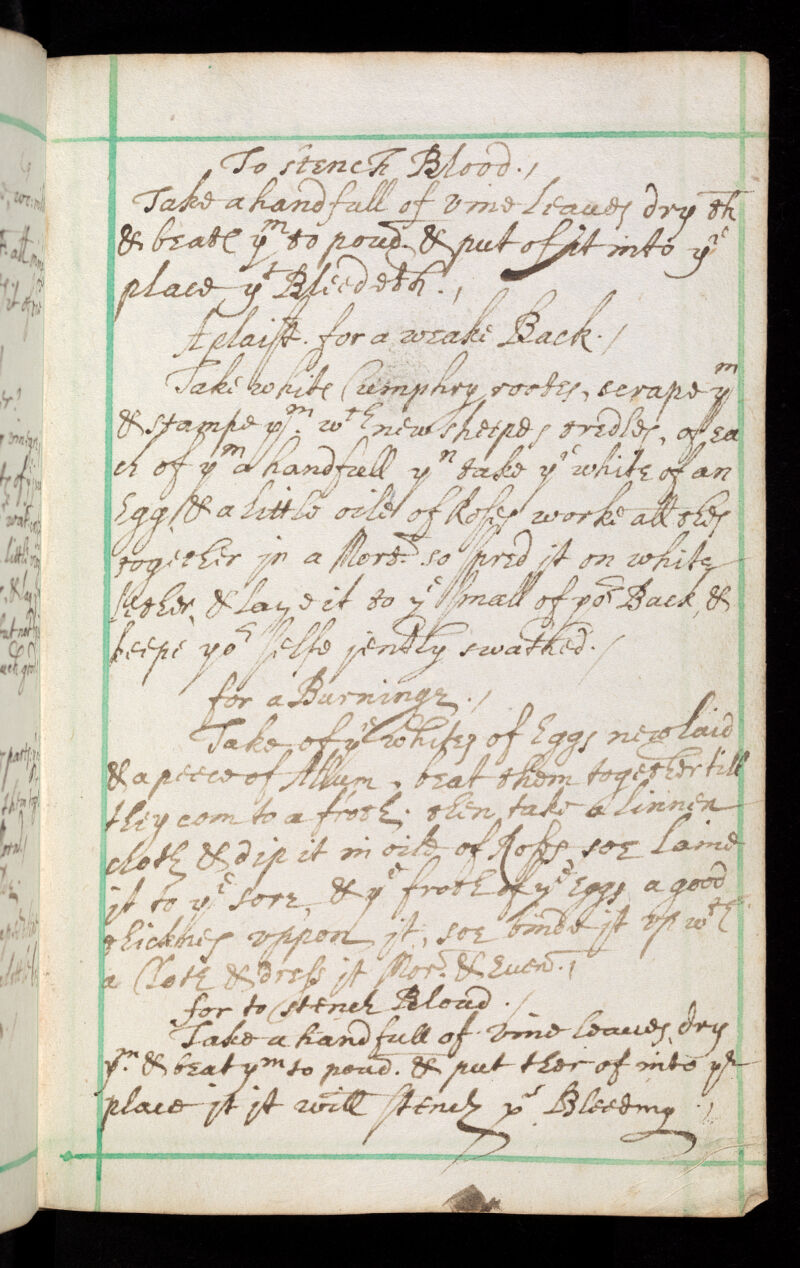 To stench Blood.,
Take a handfull of vine leaues dry th
& beate ym to poud. & put of it into ye
place yt Bleedeth.,
A plaist. for a weake Back.,
Take white Cumphry rootes, scrape ym
& stampe ym. wth new sheepes tredles, of ea
ch of ym a handfull yn take ye white of an
Egg, & a little oile of Roses worke all thes
together in a Mort. so spred it on white
lether, & laye it to ye small of yor Back, &
keepe yor selfe jently swathed.,
for a Burninge.,
Take of ye whites of Eggs new laid
& a peece of Allum, beat them together till
they com to a froth. then take a linnen
cloth & dip it in oile of Roses soe laine
it to ye sore, & ye froth of ye Eggs a good
thicknes vppon it, soe binde it vp wth
a Cloth & dress it Mor. & Euen.,
for to stench Bloud.,
Take a handfull of vine leaues, dry
ym. & beat ym to poud. & put ther of into ye
place it it will stench ye Bleeding.,